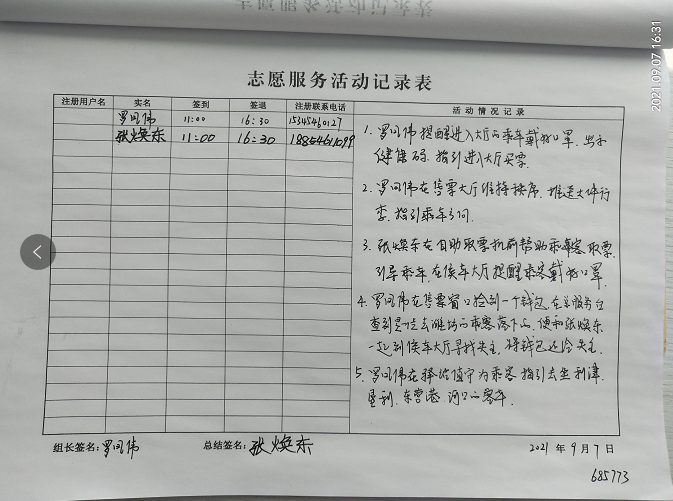 2021.09.07 16:31
志愿服务活动记录表
注册用户名 实名 签到 签退 注册联系电话 活动情况记录
罗凤伟 11:00 16:30 15345460127
张焕东 11:00 16:30 18854611099
1. 罗凤伟提醒进入大厅的乘车戴好口罩. 出示
健康码. 指引进入大厅买票.
2. 罗凤伟在售票大厅维持秩序. 推送大件行
李. 指引乘车
3. 张焕东在自助取票机前帮助乘客取票.
引导乘车. 在侯车大厅提醒乘客戴好口罩.
4. 罗凤伟在售票窗口捡到一个钱包. 在总服务台
查到是一位去潍坊的乘客落下的. 便和张焕东
一起到侯车大厅寻找失主. 将钱包还给失主.
5. 罗凤伟在驿站值守为乘客指引去坐利津.
垦利. 东营港. 河口的客车.
组长签名: 罗凤伟 总结签名: 张焕东 2021 年 9 月 7 日
685773